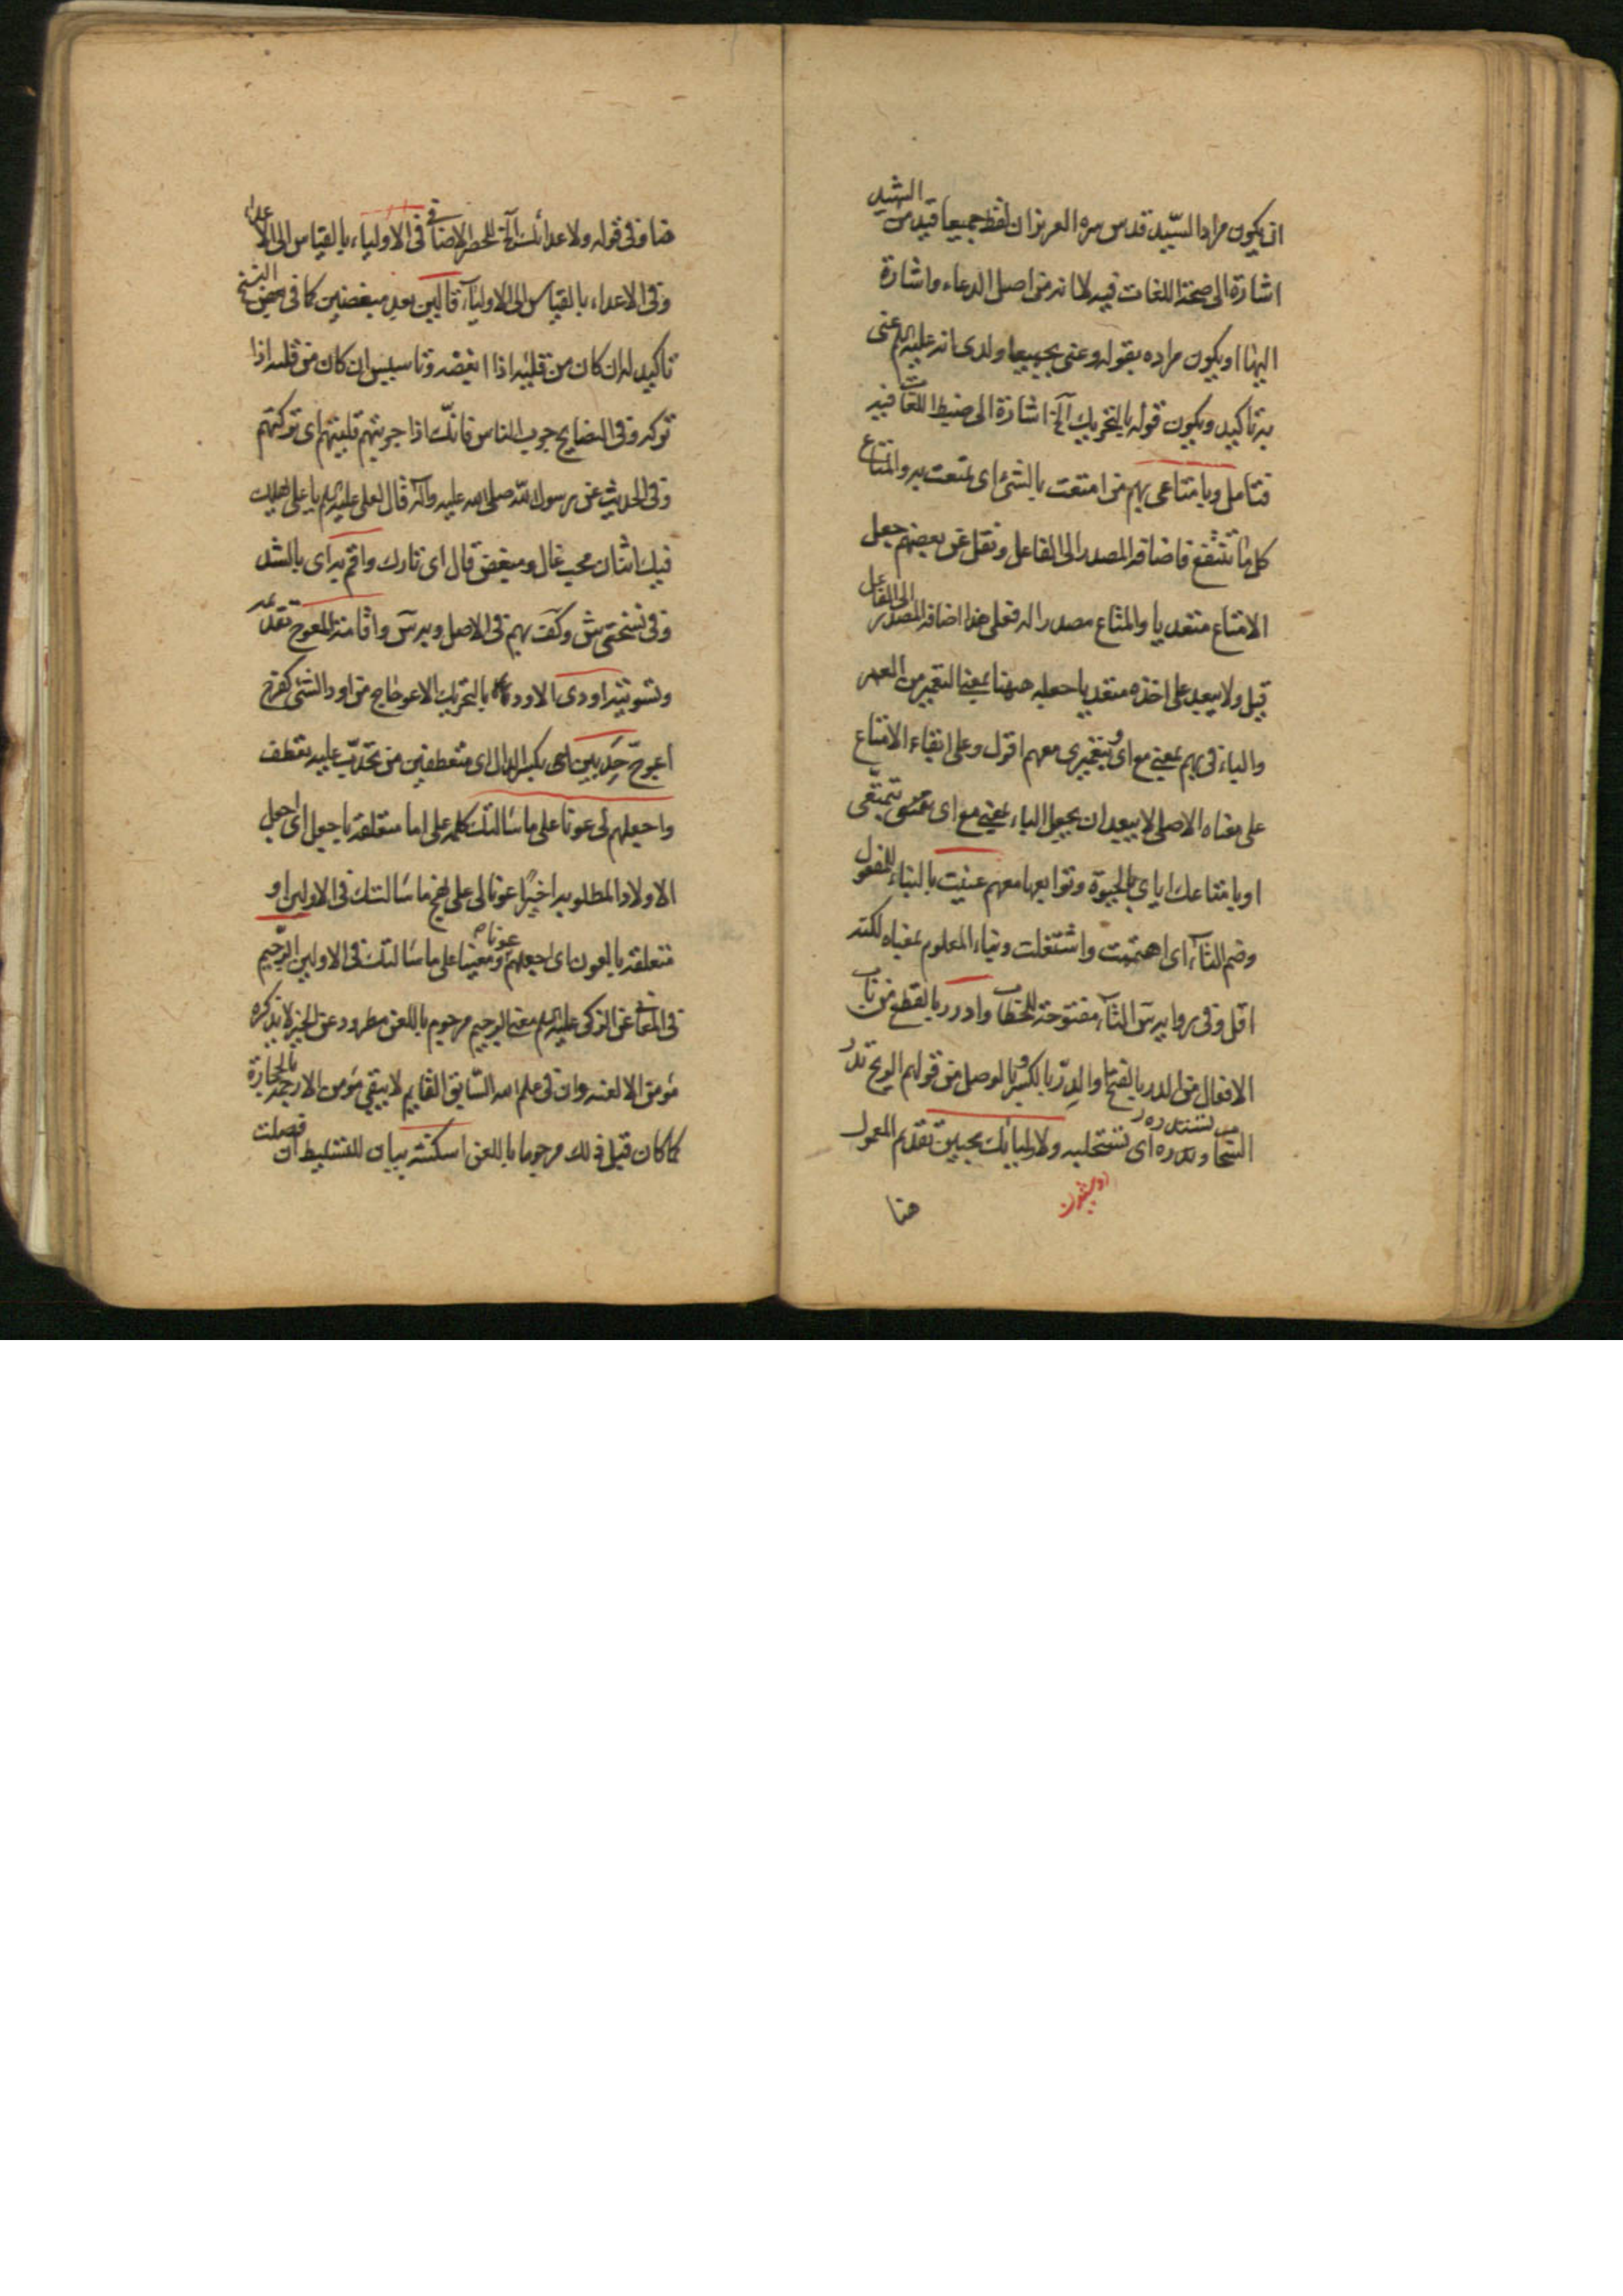 ان يكون مراد السيد قدس سره العزيز ان لفظ جميعا قيد من الشهيد
اشارة الى صحة اللغات فيه لا انه من اصل الدعاء واشارة
اليها او يكون مراده بقوله وعنى بجميعا ولدى انه عليه السلم عنى
به تاكيد ويكون قوله بالتحريك آلخ اشارة الى ضبط اللغات فيه
فتامل وبامتاعى بهم من امتعت بالشئ اى تمتعت به والمتاع
كل ما ينتفع فاضافة المصدر الى الفاعل ونقل عن بعضهم جعل
الامتاع متعديا والمتاع مصدرا له فعلى هذا اضافة المصدر الى الفاعل
قيل ولا يبعد على اخذه متعديا جعله ههنا بمعنى التعمير من العمر
والباء فى بهم بمعنى مع اى وبتعميرى معهم اقول وعلى ابقاء الامتاع
على معناه الاصلى لا يبعد ان يجعل الباء بمعنى مع اى تمتعى
او بامتاعك اياى بالحيوة وتوابعها معهم عنيت بالبناء للمفعول
وضم التاء اى اهتممت واشتغلت وبناء المعلوم بمعناه لكنه
اقل وفى رواية س التاء مفتوحة للخطاب وادرر بالقطع من باب
الافعال من الدر بالفتح والدر بالكسر وبالوصل من قولهم الريح تدر
السحاب وتستدره اى تستحلبه ولاوليائك محبين تقديم المعمول
هنا
ضا وفى قوله ولاعدائك آلخ للحصر الاضافى فى الاولياء بالقياس الى الاعداء
وفى الاعداء بالقياس الى الاولياء قالين بعد مبغضين كما فى بعض النسخ
تاكيد له ان كان من قليته اذا ابغضه وتاسيس ان كان من قلاه اذا
تركه وفى النصايح جرب الناس فانك اذا جربتهم قليتهم اى تركتهم
وفى الحديث عن رسول الله صلى الله عليه وآله قال لعلى عليه السلم يا على هلك
فيك اثنان محب غال ومبغض قال اى تارك واقم به اى بالشد
وفى نسختى ش وكف بهم فى الاصل وبرس واقامة المعوج تقديمه
وتسويته اودى الاود بالتحريك الاعوجاج من اود الشئ كفرح
اعوج حدبين اى بكسر الدال اى متعطفين من تحدب عليه تعطف
واجعلهم لى عونا على ما سالتك كلمة على اما متعلقة باجعل اى اجعل
الاولاد المطلوب اخيرا عونا لى على نهج ما سالتك فى الاولين او
متعلقة بالعون اى اجعلهم عونا ومعينا على ما سالتك فى الاولين الرجيم
فى المعانى عن الزكى عليه السلم معنى الرجيم مرجوم باللعن مطرود عن الخير لا يذكره
مؤمن الا لعنه وان فى علم الله السابق القايم لا يبقى مؤمن الا رجمه بالحجارة
كما كان قبل ذلك مرجوما باللعن اسكنته بيان للتسليط ان فصلت